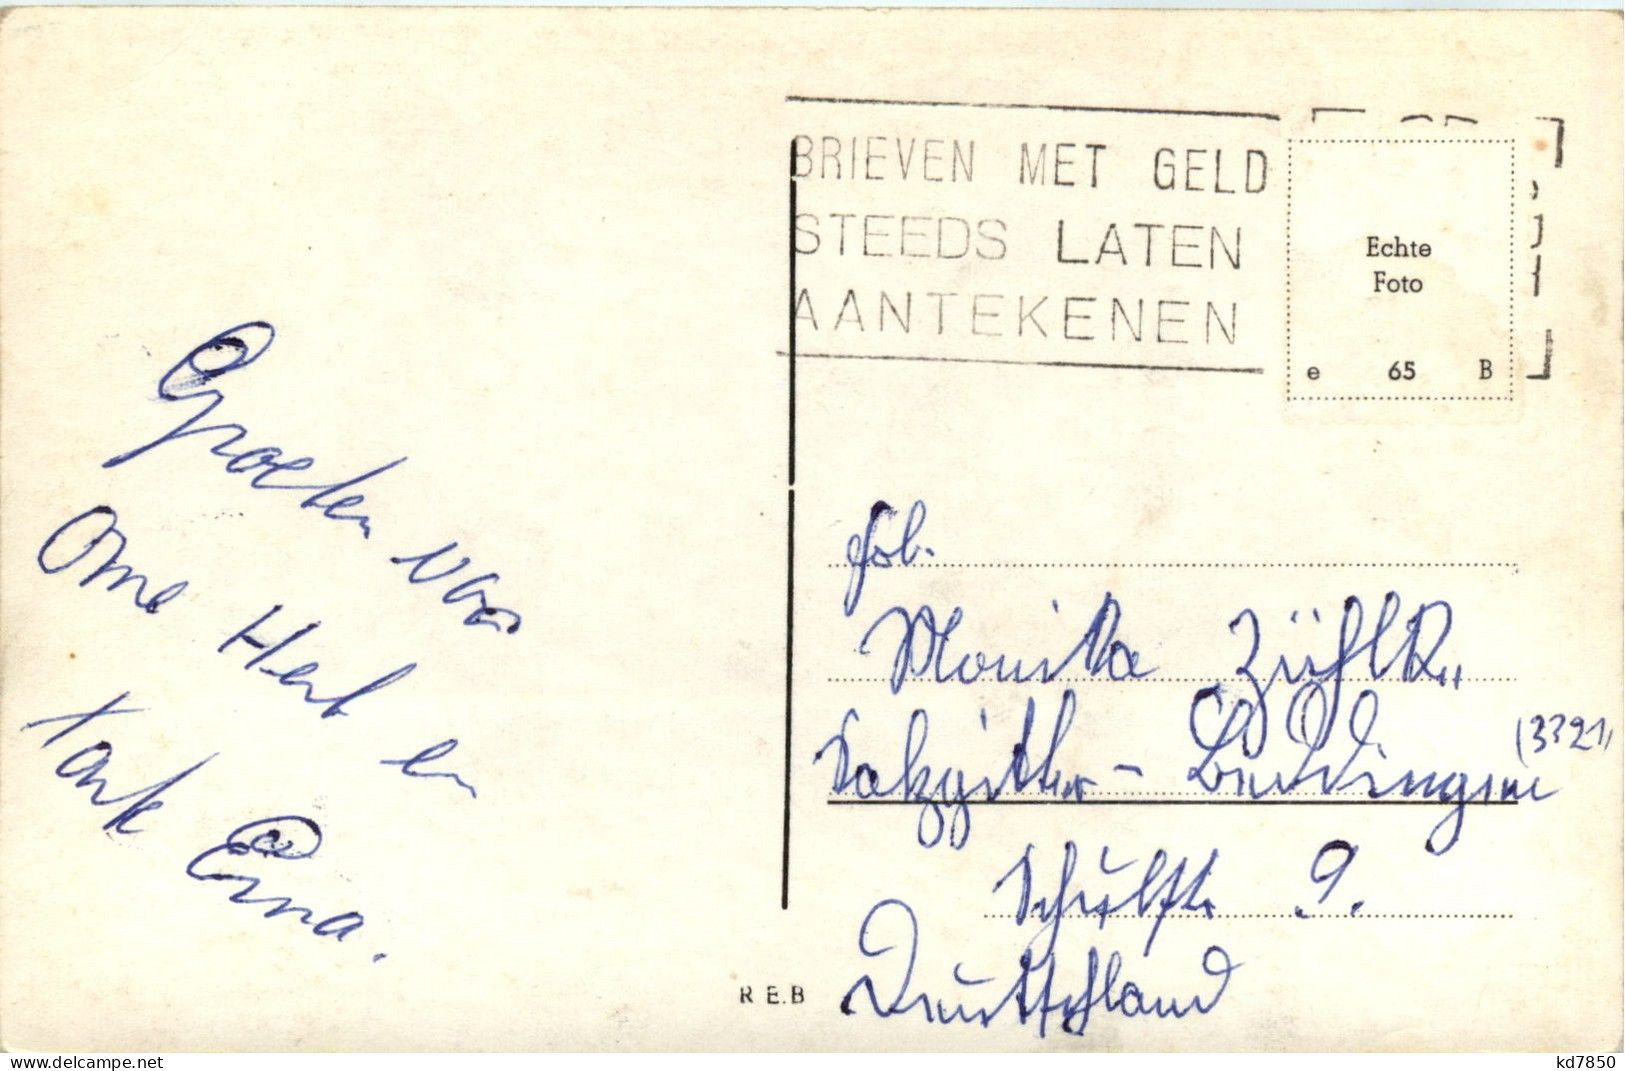 BRIEVEN MET GELD
STEEDS LATEN
AANTEKENEN
Echte
Foto
e 65 B
Groeten van
Ome Herb en
Tank Erna.
Monika
Salzgitter-Beddingen
(3321)
Schulstr. 9.
Deutschland
R.E.B
www.delcampe.net
kd7850